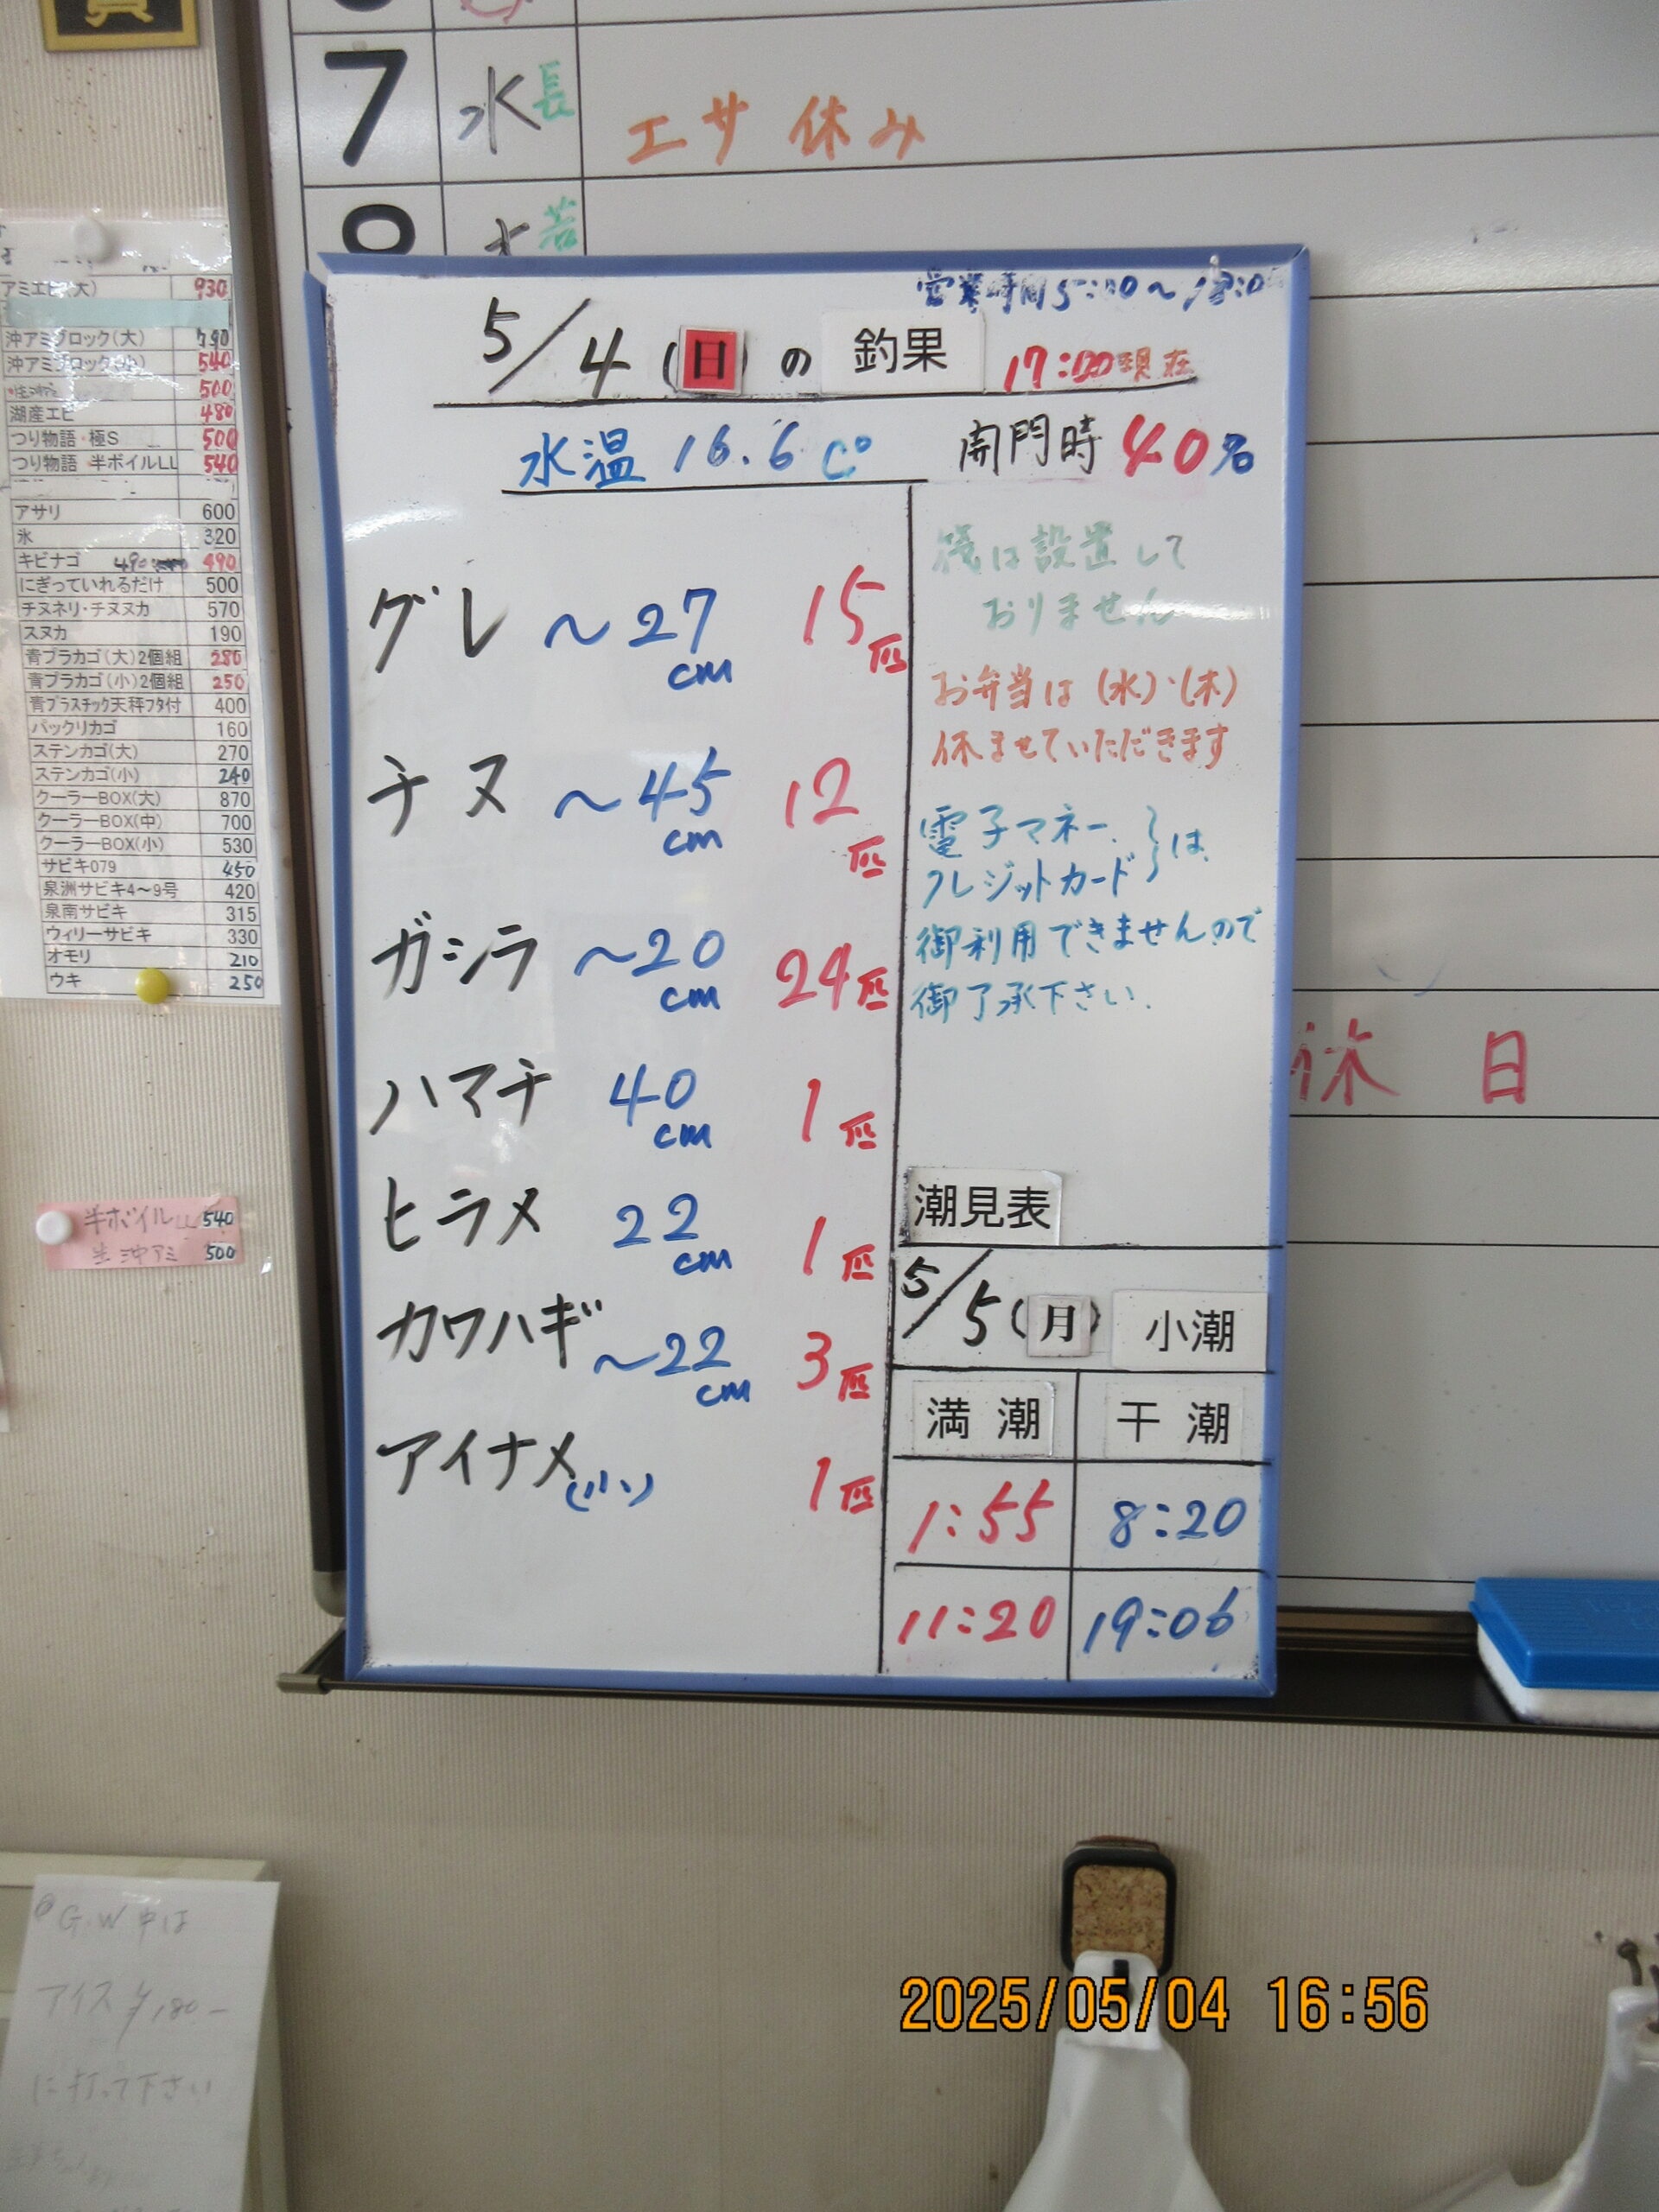 7 水 長 エサ 休み
8 木 若
営業時間 5:00～18:00
5/4 (日) の 釣果 17:00現在
水温 16.6 C° 開門時 40%
グレ ～27cm 15匹
チヌ ～45cm 12匹
ガシラ ～20cm 24匹
ハマチ 40cm 1匹
ヒラメ 22cm 1匹
カワハギ ～22cm 3匹
アイナメ(小) 1匹
は設置して
おりません
お弁当は(水)・(木)
休ませていただきます
電子マネー、
クレジットカード は
御利用できませんので
御了承下さい.
潮見表
5/5 (月) 小潮
満潮 干潮
1:55 8:20
11:20 19:06
休 日
アミエビ(大) 930
沖アミブロック(大) 790
沖アミブロック 540
500
湖産エビ 480
つり物語・極S 500
つり物語 半ボイルLL 540
アサリ 600
氷 320
キビナゴ 490 490
にぎっていれるだけ 500
チヌネリ・チヌヌカ 570
スヌカ 190
青プラカゴ(大)2個組 280
青プラカゴ(小)2個組 250
青プラスチック天秤フタ付 400
パックリカゴ 160
ステンカゴ(大) 270
ステンカゴ(小) 240
クーラーBOX(大) 870
クーラーBOX(中) 700
クーラーBOX(小) 530
サビキ079 450
泉洲サビキ4～9号 420
泉南サビキ 315
ウィリーサビキ 330
オモリ 210
ウキ 250
半ボイルLL 540
生沖アミ 500
G.W中は
アイス ¥180-
に打って下さい
2025/05/04 16:56